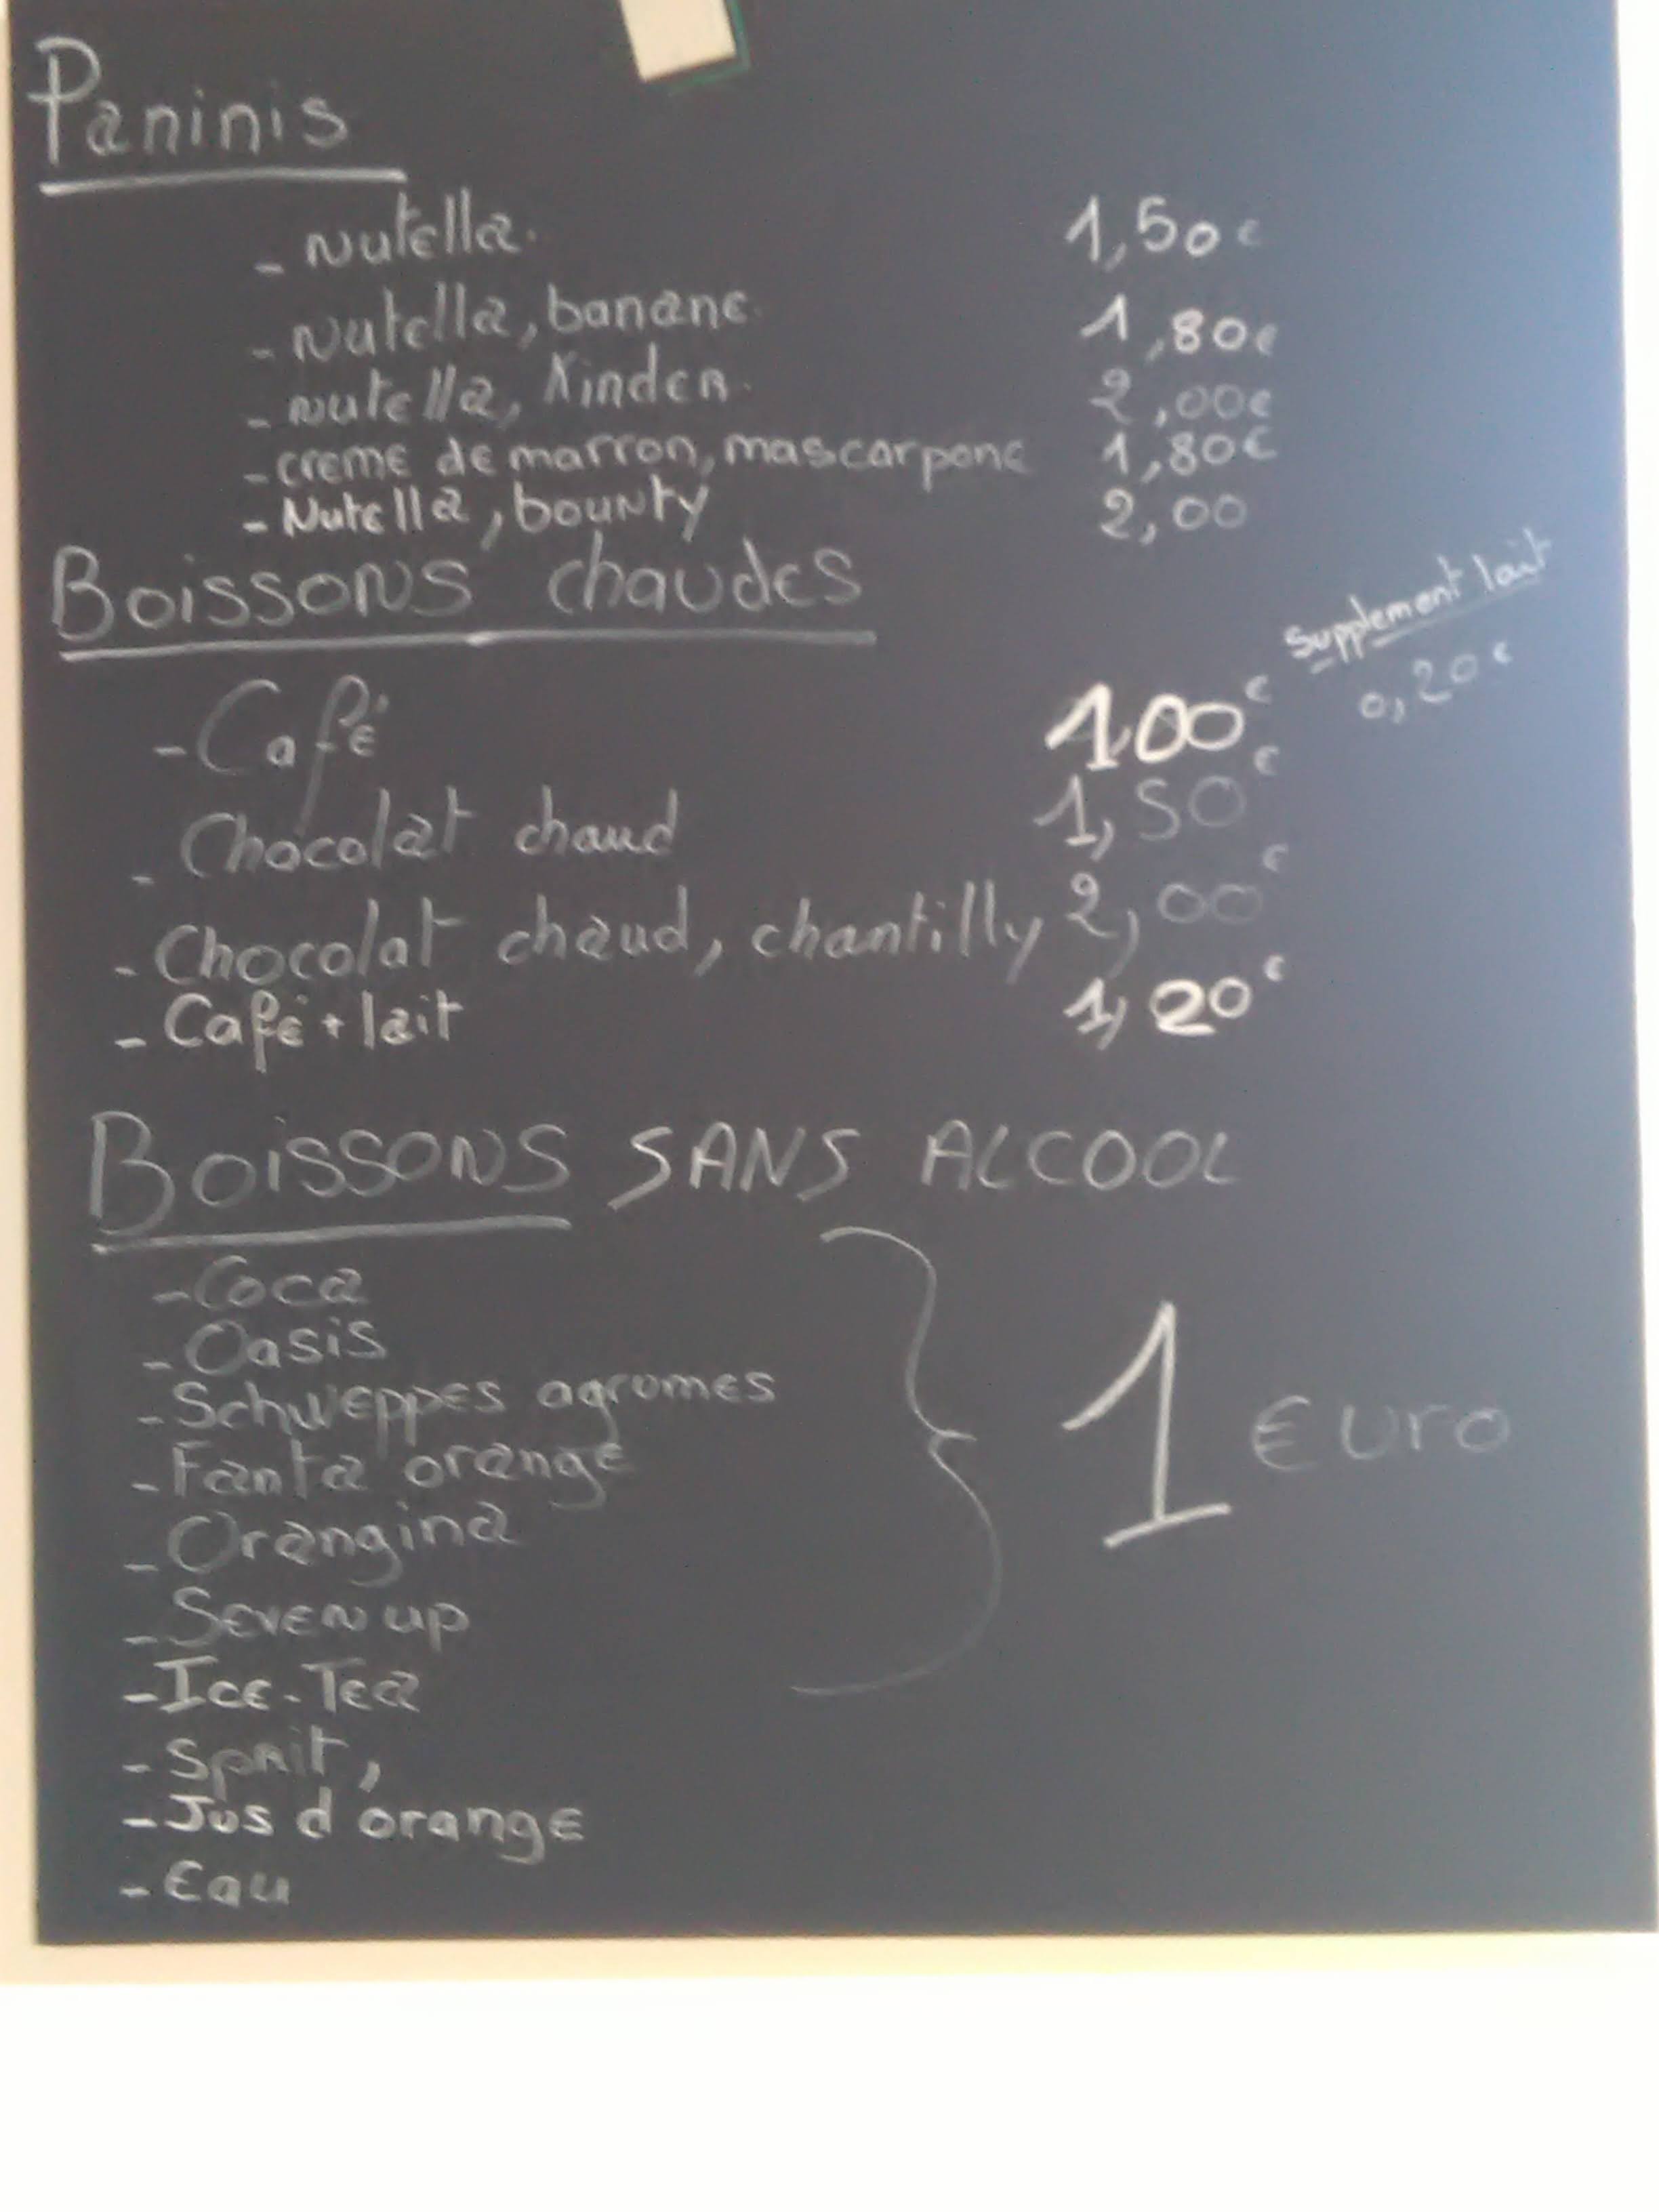 Paninis
- Nutella. 1,50€
- Nutella, banane. 1,80€
- nutella, Kinder. 2,00€
- creme de marron, mascarpone 1,80€
- Nutella, bounty 2,00
Boissons chaudes
supplement lait
0,20€
- Café 1,00€
- Chocolat chaud 1,50€
- Chocolat chaud, chantilly 2,00€
- Café + lait 1,20€
Boissons SANS ALCOOL
- Coca
- Oasis
- Schweppes agrumes
- Fanta orange
1 Euro
- Orangina
- Seven up
- Ice-Tea
- Sprit,
- Jus d orange
- Eau